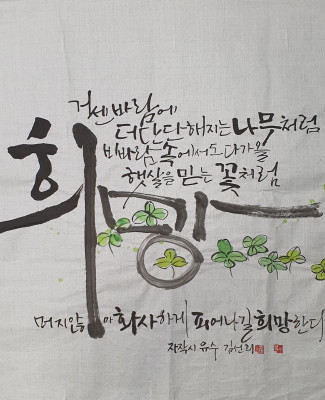 거센바람에
더단단해지는 나무처럼
비바람속에서도 다가올
햇살을 믿는 꽃처럼
희망
머지않아 화사하게 피어나길 희망한다
자작시 유수 김선희